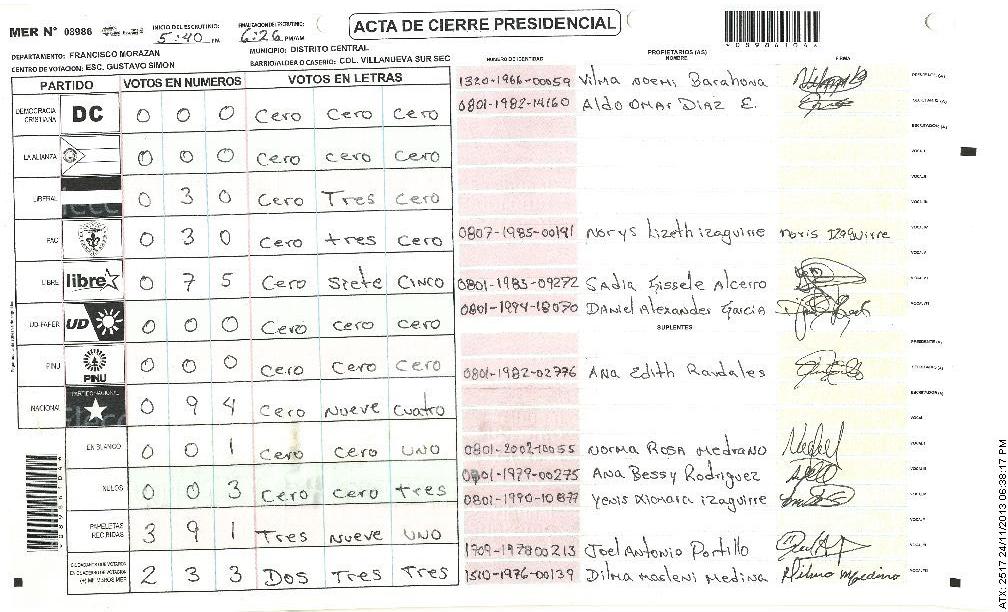 MER Nº 08986
INICIO DEL ESCRUTINIO:
5:40 PM
FINALIZACION DEL ESCRUTINIO:
6:26 PM/AM
ACTA DE CIERRE PRESIDENCIAL
DEPARTAMENTO: FRANCISCO MORAZAN
MUNICIPIO: DISTRITO CENTRAL
CENTRO DE VOTACION: ESC. GUSTAVO SIMON
BARRIO/ALDEA O CASERIO: COL. VILLANUEVA SUR SEC
PARTIDO VOTOS EN NUMEROS VOTOS EN LETRAS
DEMOCRACIA CRISTIANA DC 0 0 0 Cero Cero Cero
LA ALIANZA 0 0 0 Cero cero Cero
LIBERAL 0 3 0 Cero Tres Cero
PAC 0 3 0 Cero tres Cero
LIBRE libre 0 7 5 Cero Siete CINCO
UD-FAPER UD 0 0 0 Cero Cero Cero
PINU PINU 0 0 0 Cero Cero Cero
NACIONAL PARTIDO NACIONAL 0 9 4 Cero Nueve Cuatro
EN BLANCO 0 0 1 Cero Cero UNO
NULOS 0 0 3 Cero Cero tres
PAPELETAS RECIBIDAS 3 9 1 Tres Nueve UNO
2 3 3 DOS Tres Tres
NUMERO DE IDENTIDAD
PROPIETARIOS (AS)
NOMBRE
FIRMA
1320-1966-00059 Vilma Noemi Barahona
0801-1982-14160 Aldo Omar Diaz E.
0807-1985-00191 Norys Lizeth izaguirre Noris IZAguirre
0801-1983-09272 Sadia Gissele Alcerro
0801-1994-18070 Daniel Alexander Garcia
SUPLENTES
0801-1982-02776 Ana Edith Raudales
0801-2002-10055 Norma Rosa Medrano
0801-1979-00275 Ana Bessy Rodriguez
0801-1990-10877 Yenis Xiomara izaguirre
1709-197800213 Joel Antonio Portillo
1510-1976-00139 Dilma Masleni Medina Dilma Medina
ATX: 2517 24/11/2013 06:38:17 PM